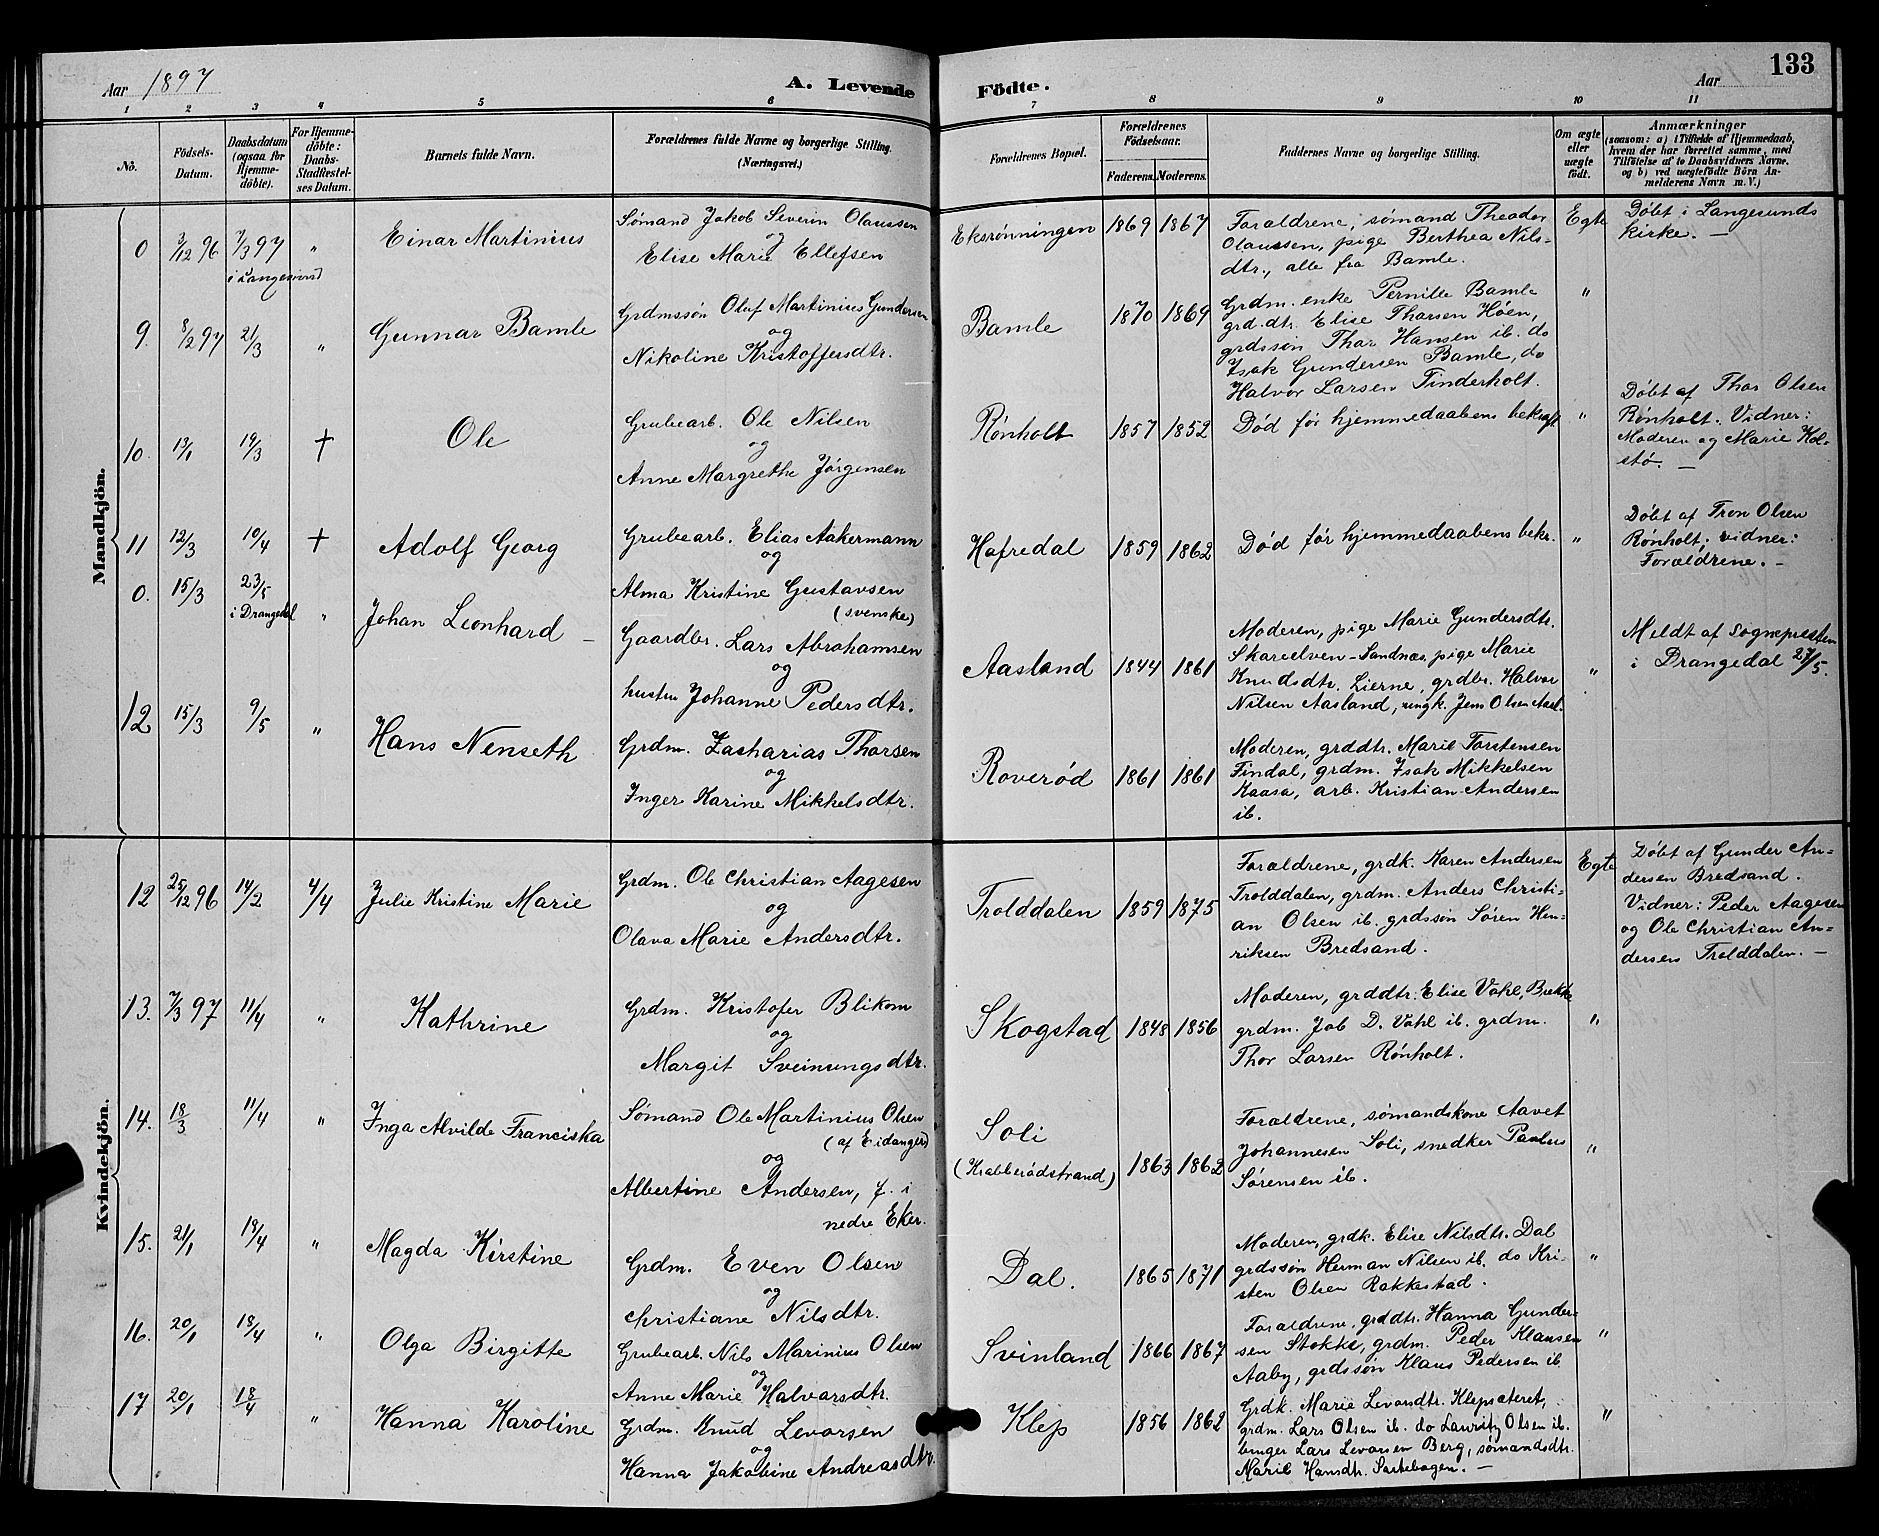 Aar 1897
A. Levende
Födte.
Aar
133
1 2 3 4 5 6 7 8 9 10 11
No.
Födsels-
Datum.
Daabsdatum
(ogsaa for
Hjemme-
döbte).
For Hjemme-
döbte:
Daabs-
Stadfæstel-
ses Datum.
Barnets fulde Navn.
Forældrenes fulde Navne og borgerlige Stilling.
(Næringsvei.)
Forældrenes Bopæl.
Forældrenes
Födselsaar.
Faderens. Moderens.
Faddernes Navne og borgerlige Stilling.
Om ægte
eller
uægte
födt.
Anmærkninger
(saasom: a) i Tilfælde af Hjemmedaab,
hvem der har forrettet samme, med
Tilföielse af to Daabsvidners Navne,
og b) ved uægtefödte Börn An-
melderens Navn m. V.)
Mandkjön.
0 3/12 96 7/3 97 "
i Langesund
Einar Martinius
Sømand Jakob Severin Olaussen
og
Elise Marie Ellefsen
Eksrønningen 1869 1867
Forældrene, sømand Theodor
Olaussen, pige Berthea Nils-
dtr., alle fra Bamle.
Egte
Døbt i Langesunds
kirke. —
9. 8/2 97 21/3 "
Gunnar Bamle
Grdmssøn Oluf Martinius Gundersen
og
Nikoline Kristoffersdtr.
Bamle 1870 1869
Grdm. enke Pernille Bamle
grd.dtr. Elise Tharsen Høen,
grdssøn Thor Hansen ib. do
Isak Gundersen Bamle, do
Halvor Larsen Tinderholt.
"
10. 13/1 19/3 †
Ole
Grubearb. Ole Nilsen
og
Anne Margrethe Jørgensen
Rønholt 1857 1852
Død før hjemmedaabens bekræft
"
Døbt af Thor Olsen
Rønholt. Vidner:
Moderen og Marie Kol-
stø. —
11 12/3 10/4 †
Adolf Georg
Grubearb. Elias Aakermann
og
Alma Kristine Gustavsen
(svenske)
Hafredal 1859 1862
Død før hjemmedaabens bekr.
"
Døbt af Tron Olsen
Rønholt. vidner:
Forældrene. —
0. 15/3 23/5 "
i Drangedal
Johan Leonhard —
Gaardbr. Lars Abrahamsen
og
hustru Johanne Pedersdtr.
Aasland 1844 1861
Moderen, pige Marie Gundersdtr.
Skareelven-Sandnæs, pige Marie
Knudsdtr. Lierne, grdbr. Halvor
Nilsen Aasland, ungk. Jens Olsen Aasl.
"
Meldt af sognepresten
i Drangedal 27/5.
12 15/3 9/5 "
Hans Nenseth
Grdm. Zacharias Tharsen
og
Inger Karine Mikkelsdtr.
Roverød 1861 1861
Moderen, grddtr. Marie Torstensen
Findal, grdm. Isak Mikkelsen
Kaasa, arb. Kristian Andersen
ib.
Kvindekjön.
12 25/12 96 14/2 4/4
Julie Kristine Marie
Grdm. Ole Christian Aagesen
og
Olava Marie Andersdtr.
Trolddalen 1859 1875
Forældrene, grdk. Karen Andersen
Trolddalen, grdm. Anders Christi-
an Olsen ib. grdssøn Søren Hen-
riksen Bredsand.
Egte
Døbt af Gunder An-
dersen Bredsand.
Vidner: Peder Aagesen
og Ole Christian An-
dersen Trolddalen. —
13. 7/3 97 11/4 "
Kathrine
Grdm. Kristofer Blikom
og
Margit Sveinungsdtr.
Skogstad 1848 1856
Moderen, grddtr. Elise Vahl, Brekke
grdm. Job D. Vahl ib. grdm.
Thor Larsen Rønholt.
"
14. 18/3 11/4 "
Inga Alvilde Franciska
Sømand Ole Martinius Olsen
(af Eidanger)
og
Albertine Andersen, f. i
nedre Eker.
Soli
(Krabberødstrand) 1863 1862
Forældrene, sømandskone Aavet
Johannesen Soli, snedker Paulus
Sørensen ib.
"
15. 21/1 19/4 "
Magda Kirstine
Grdm. Even Olsen
og
Christiane Nilsdtr.
Dal. 1865 1871
Moderen, grdk. Elise Nilsdtr. Dal
grdssøn Herman Nilsen ib. do Kri-
sten Olsen Rakkestad.
"
16. 20/1 18/4 "
Olga Birgitte
Grubearb. Nils Marinius Olsen
og
Anne Marie Halvorsdtr.
Svinland 1866 1867
Forældrene, grddtr. Hanna Gunder-
sen Stokke, grdm. Peder Klausen
Aaby, grdssøn Klaus Pedersen ib.
"
17 20/1 18/4 "
Hanna Karoline
Grdm. Knud Levorsen
og
Hanna Jakobine Andreasdtr.
Klep 1856 1862
Grdk. Marie Levorsdtr. Klepsæteret,
grdm. Lars Olsen ib. do Lauritz Olsen ib.
Lars Levorsen Berg, sømandsdtr.
Marie Hansdtr. Sartebogen. —
"